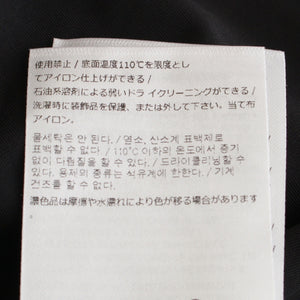 使用禁止 / 底面温度110℃を限度とし
てアイロン仕上げができる /
石油系溶剤による弱いドライクリーニングができる /
洗濯時に装飾品を保護、または外して下さい。当て布
アイロン。
물세탁은 안 된다. / 염소, 산소계 표백제로
표백할 수 없다. / 110℃ 이하의 온도에서 증기
없이 다림질을 할 수 있다. / 드라이클리닝할 수
있다. 용제의 종류는 석유계에 한한다. / 기계
건조를 할 수 없다.
濃色品は摩擦や水濡れにより色が移る場合があります